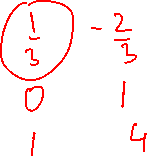 1/3 -2/3
0 1
1 4